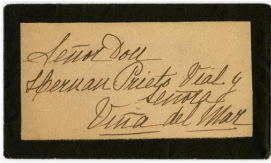 Señor Don
Hernan Prieto Vial y
Señora
Viña del Mar